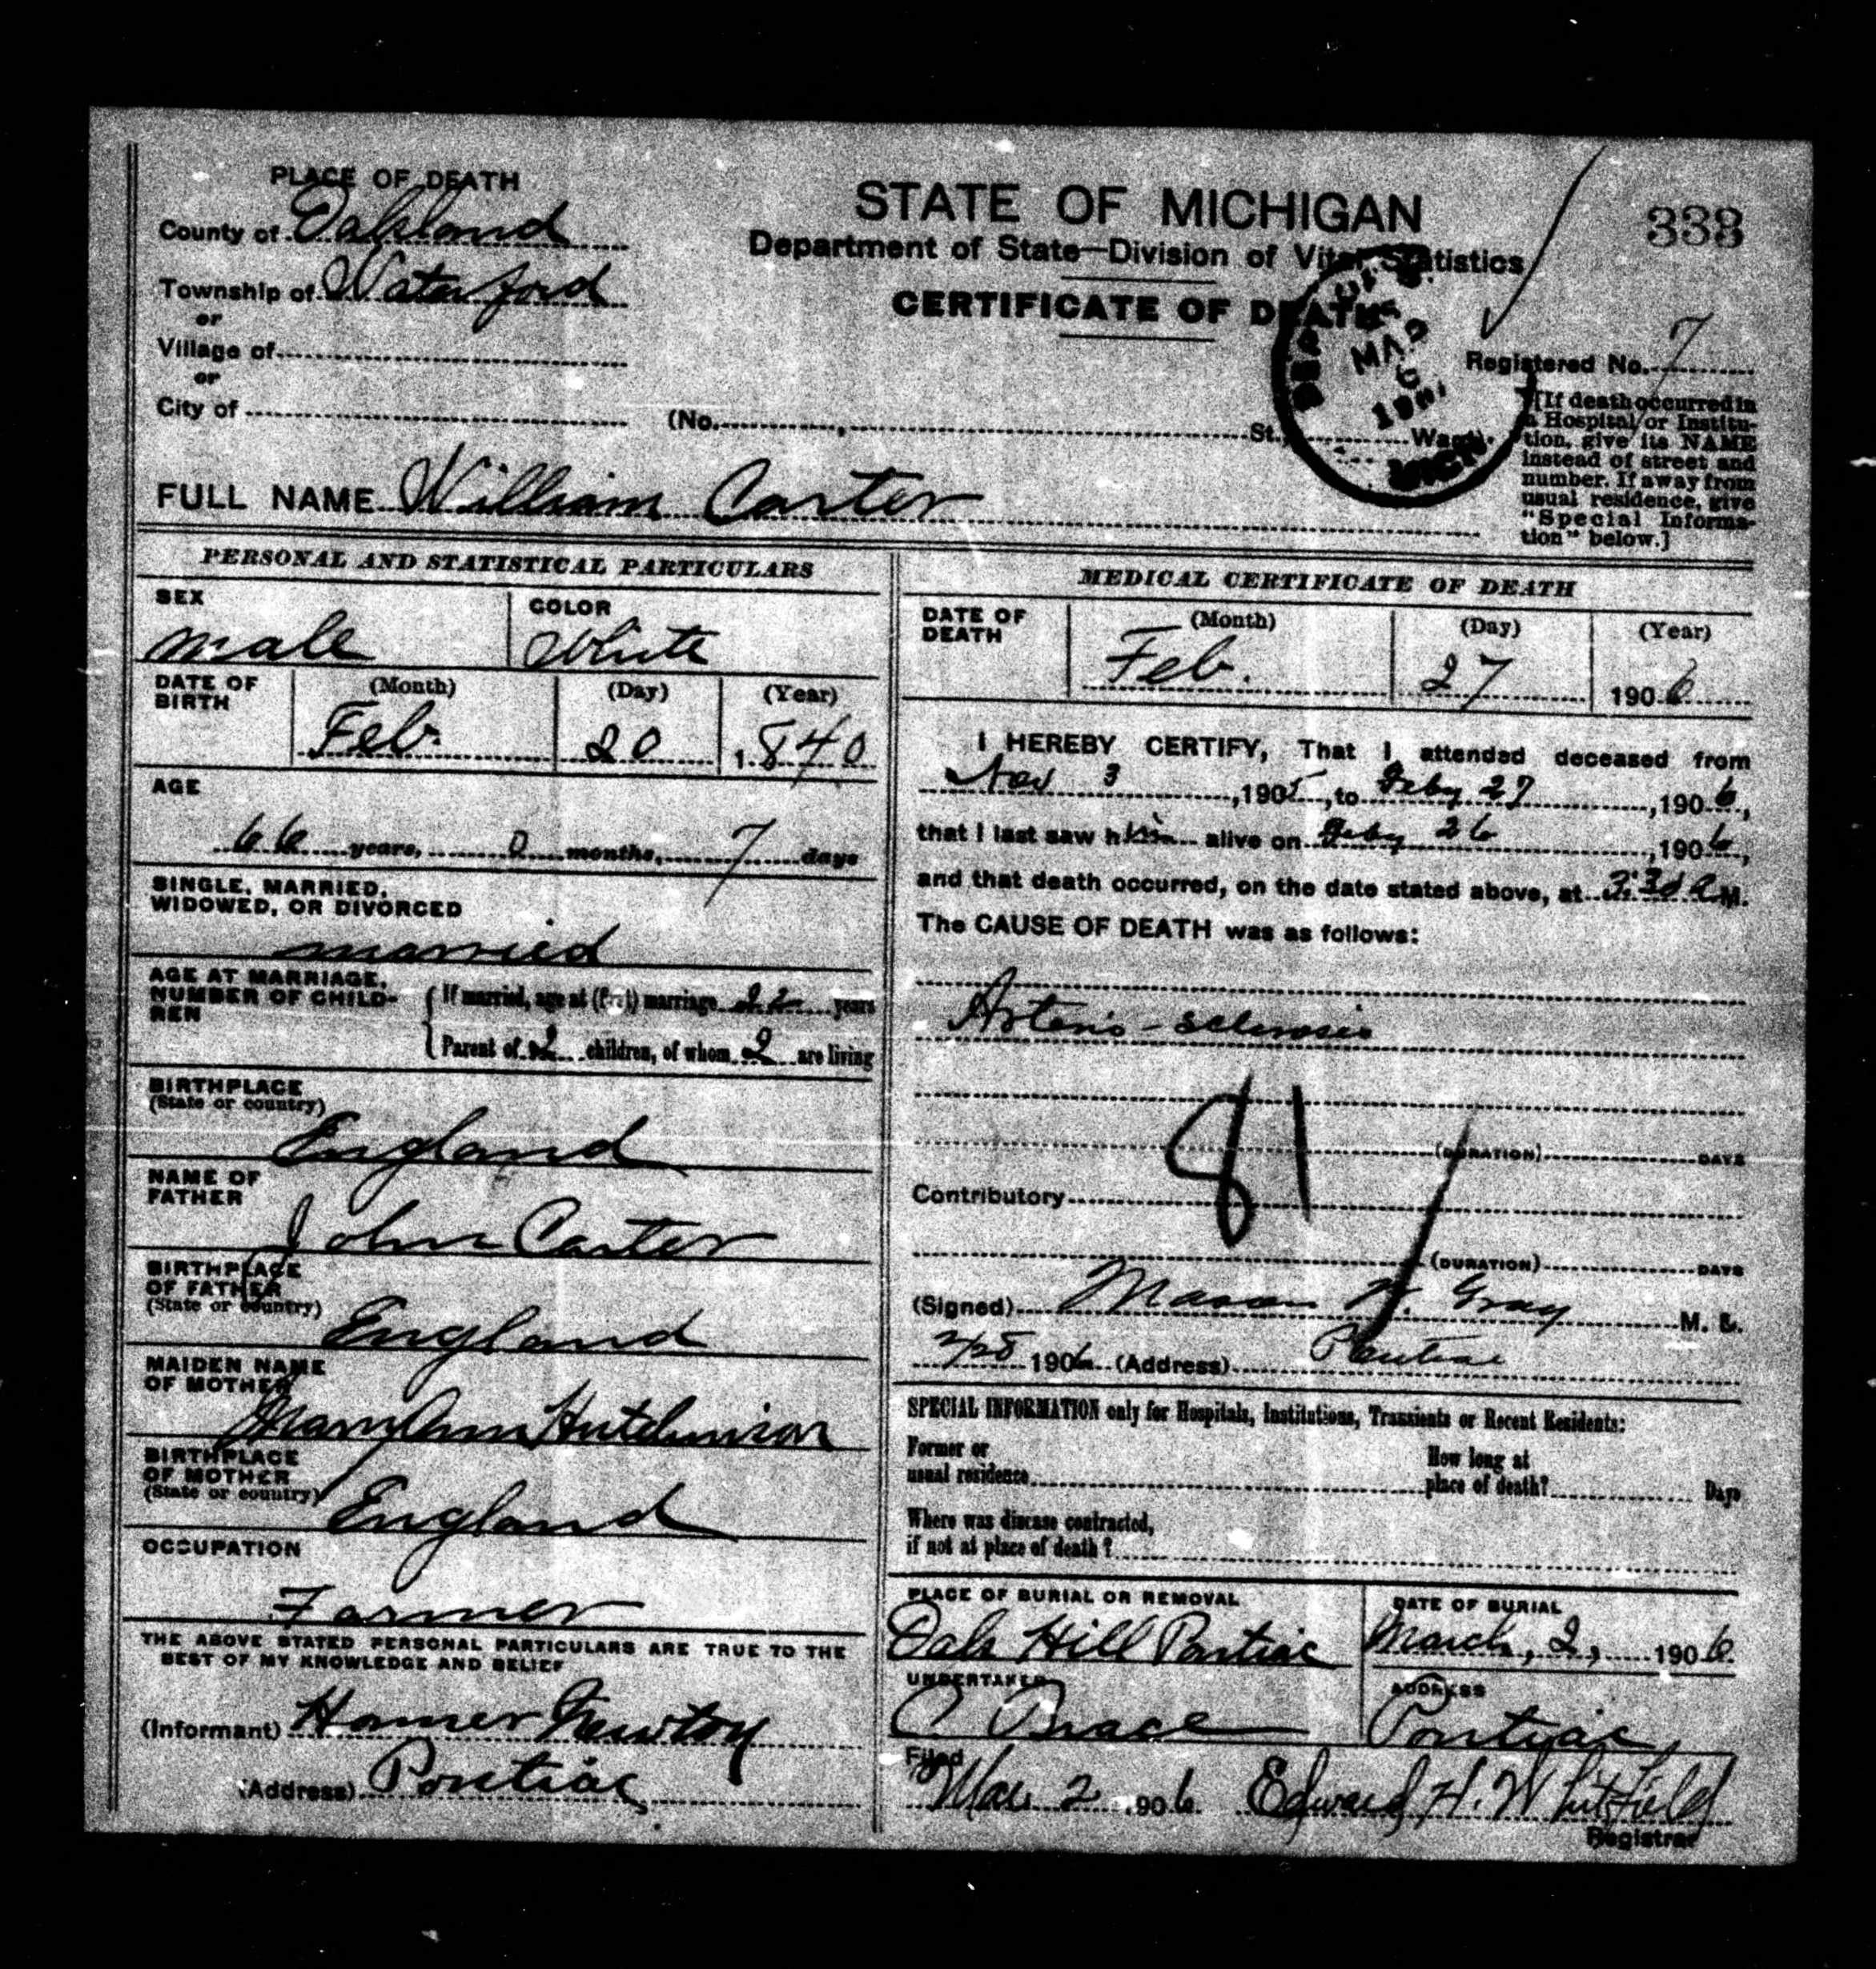 PLACE OF DEATH
County of Oakland
Township of Waterford
or
Village of
or
City of (No. , St., Ward)
STATE OF MICHIGAN
Department of State—Division of Vital Statistics
CERTIFICATE OF DEATH
338
Registered No. 7
MAR
6
MICH.
[If death occurred in
a Hospital or Institu-
tion, give its NAME
instead of street and
number. If away from
usual residence, give
"Special Informa-
tion" below.]
FULL NAME William Carter
PERSONAL AND STATISTICAL PARTICULARS
SEX
male
COLOR
White
DATE OF BIRTH
(Month) (Day) (Year)
Feb. 20 1840
AGE
66 years, 0 months, 7 days
SINGLE, MARRIED,
WIDOWED, OR DIVORCED
married
AGE AT MARRIAGE,
NUMBER OF CHILD-
REN
If married, age at (first) marriage 22 years
Parent of 2 children, of whom 2 are living
BIRTHPLACE
(State or country)
England
NAME OF
FATHER
John Carter
BIRTHPLACE
OF FATHER
(State or country)
England
MAIDEN NAME
OF MOTHER
Mary Ann Hutchinson
BIRTHPLACE
OF MOTHER
(State or country)
England
OCCUPATION
Farmer
THE ABOVE STATED PERSONAL PARTICULARS ARE TRUE TO THE
BEST OF MY KNOWLEDGE AND BELIEF
(Informant) Homer Newton
(Address) Pontiac
MEDICAL CERTIFICATE OF DEATH
DATE OF
DEATH
(Month) (Day) (Year)
Feb. 27 1906
I HEREBY CERTIFY, That I attended deceased from
Nov 3, 1905, to Feby 27, 1906,
that I last saw him alive on Feby 26, 1906,
and that death occurred, on the date stated above, at 3:30 a M.
The CAUSE OF DEATH was as follows:
Arterio-sclerosis
81
(DURATION) DAYS
Contributory
(DURATION) DAYS
(Signed) Mason W. Gray M. D.
2/28 1906 (Address) Pontiac
SPECIAL INFORMATION only for Hospitals, Institutions, Transients or Recent Residents:
Former or
usual residence
How long at
place of death? Days
Where was disease contracted,
if not at place of death?
PLACE OF BURIAL OR REMOVAL
Oak Hill Pontiac
DATE OF BURIAL
March, 2, 1906
UNDERTAKER
C Brace
ADDRESS
Pontiac
Filed
Mar 2 1906 Edward H. Whitfield
Registrar